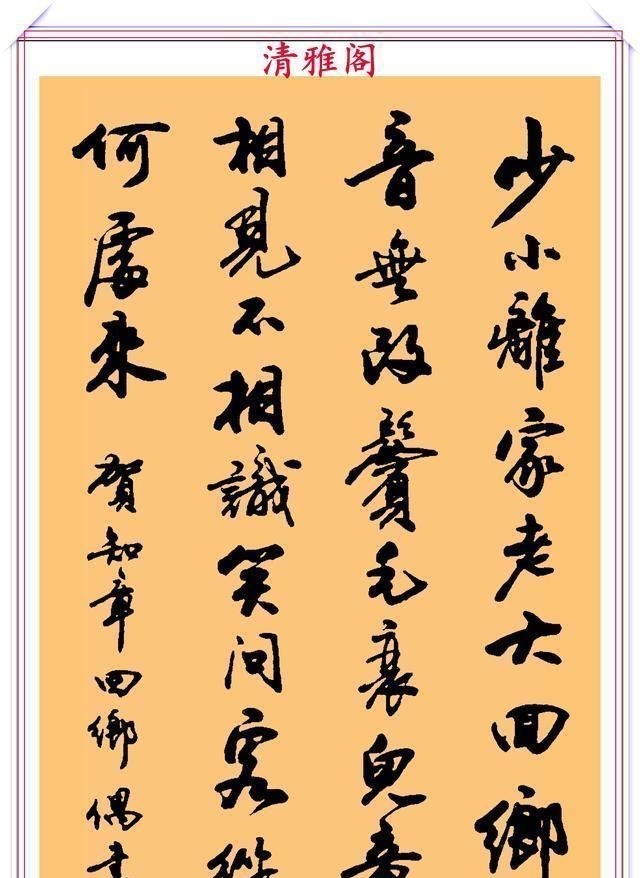 清雅阁
少小離家老大回鄉
音無改鬢毛衰兒童
相見不相識笑問客從
何處來 賀知章回鄉偶書